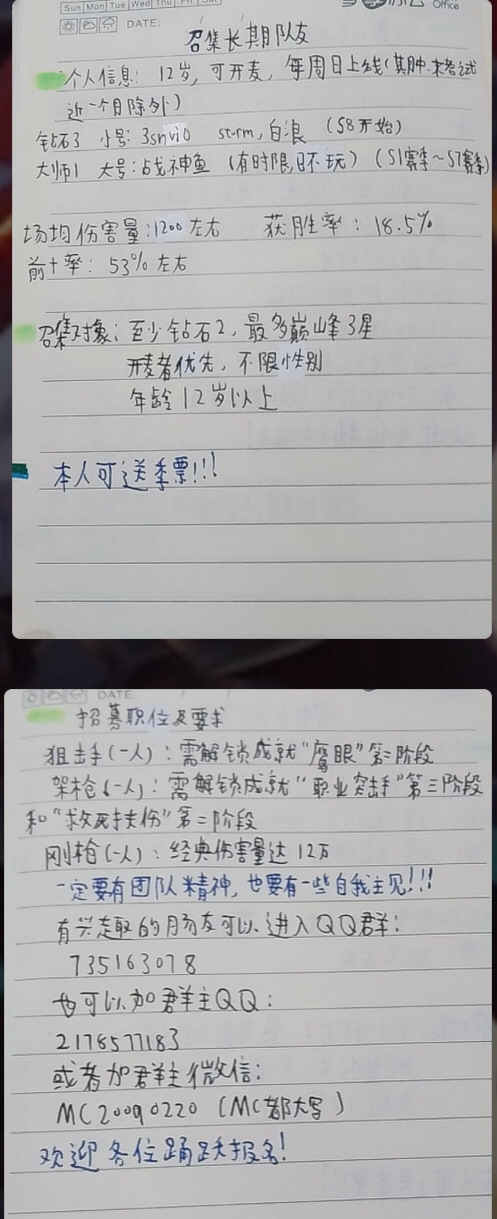 Sun Mon Tue Wed Thu Fri Sat
Office
DATE:
召集长期队友
个人信息: 12岁, 可开麦, 每周日上线(其中.末考试
近一个月除外)
钻石3 小号: 3snvio storm,白浪 (S8开始)
大师1 大号:战神鱼 (有时限,日不玩) (S1赛季~S7赛季)
场均伤害量:1200左右 获胜率: 18.5%
前十率: 53%左右
召集对象: 至少钻石2, 最多巅峰3星
开麦者优先, 不限性别
年龄12岁以上
本人可送季票!!!
DATE
招募职位及要求
狙击手(一人): 需解锁成就"鹰眼"第三阶段
架枪(一人): 需解锁成就"职业突击手"第三阶段
和"救死扶伤"第二阶段
刚枪(一人): 经典伤害量达12万
一定要有团队精神, 也要有一些自我主见!!!
有兴趣的朋友可以进入QQ群:
735163078
也可以加群主QQ:
2178577183
或者加群主微信:
MC20090220 (MC都大写)
欢迎各位踊跃报名!